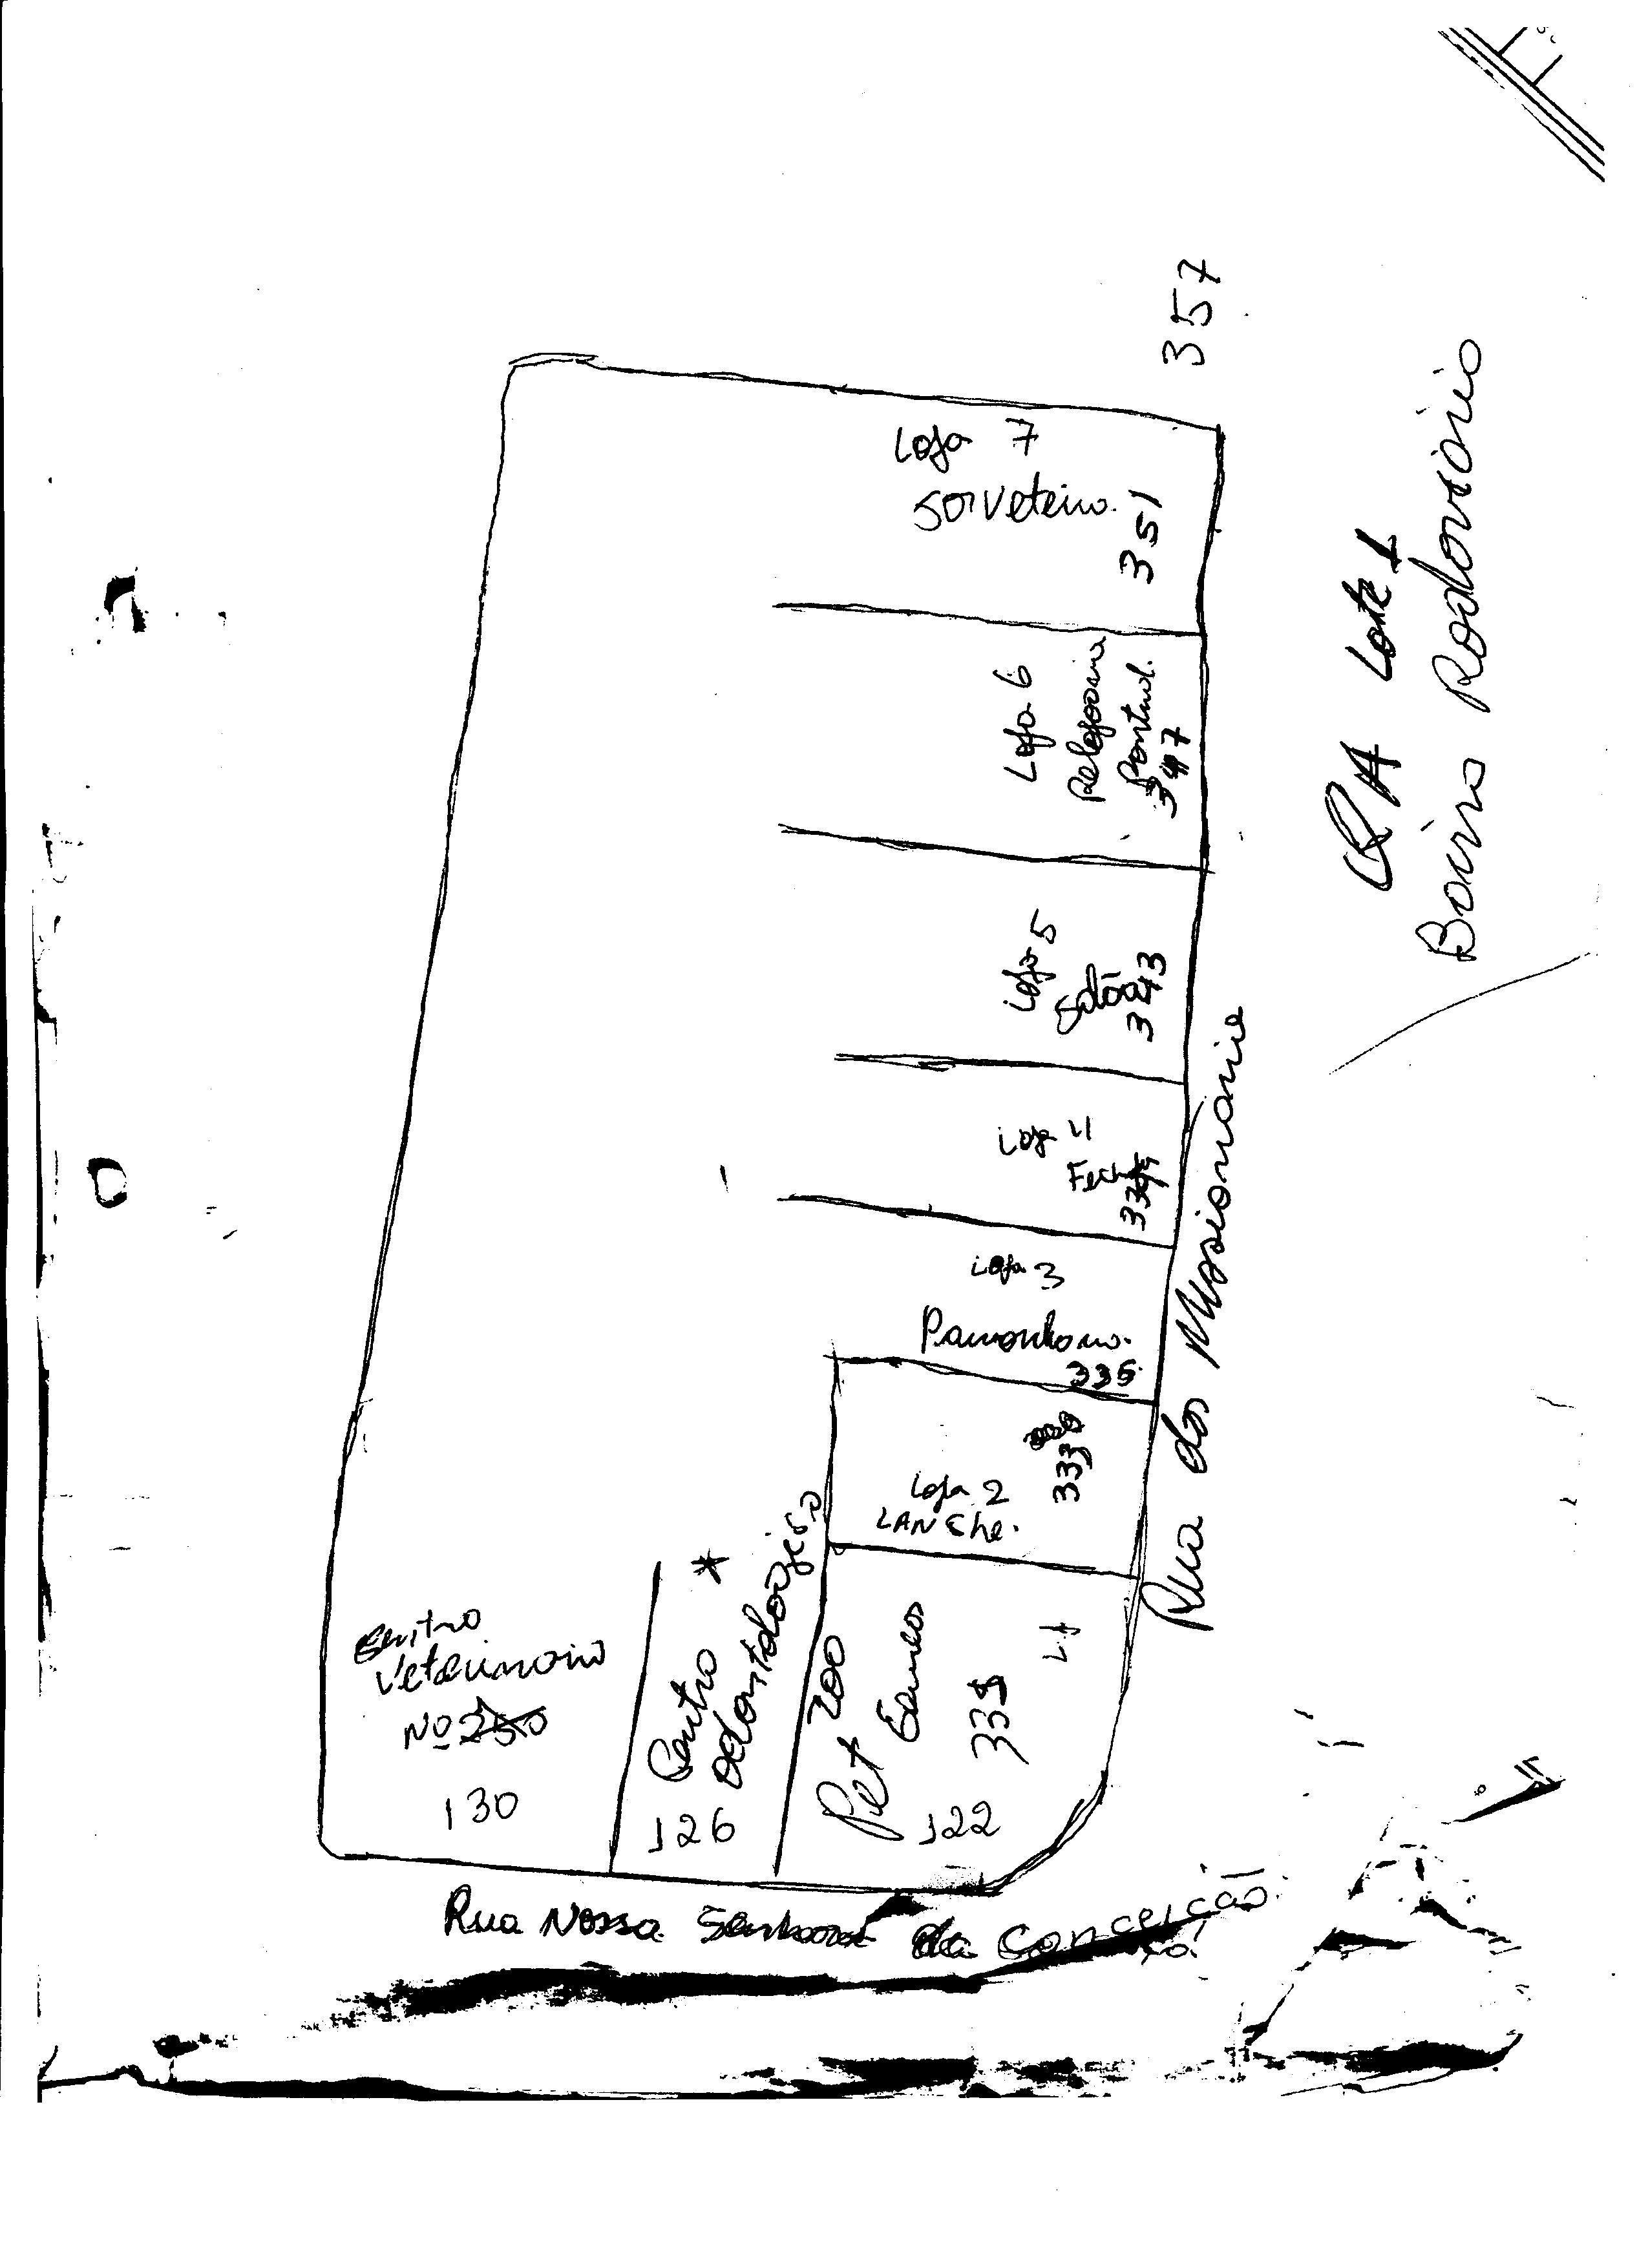 357
Loja 7
Sorveteiro.
351
Loja 6
Relojoaria
Pontual.
347
Loja 5
Salão
343
Loja 4
Fech
339
Loja 3
Pamonharia.
335
Loja 2
LANChe.
333
Centro
Veterinario
Nº 250
130
Centro
odontologico
126
*
Pet Zoo
122
Rua dos Missionario
Rua Nossa Senhora da Conceição
QA Lote 1
Bairro Rodoviario